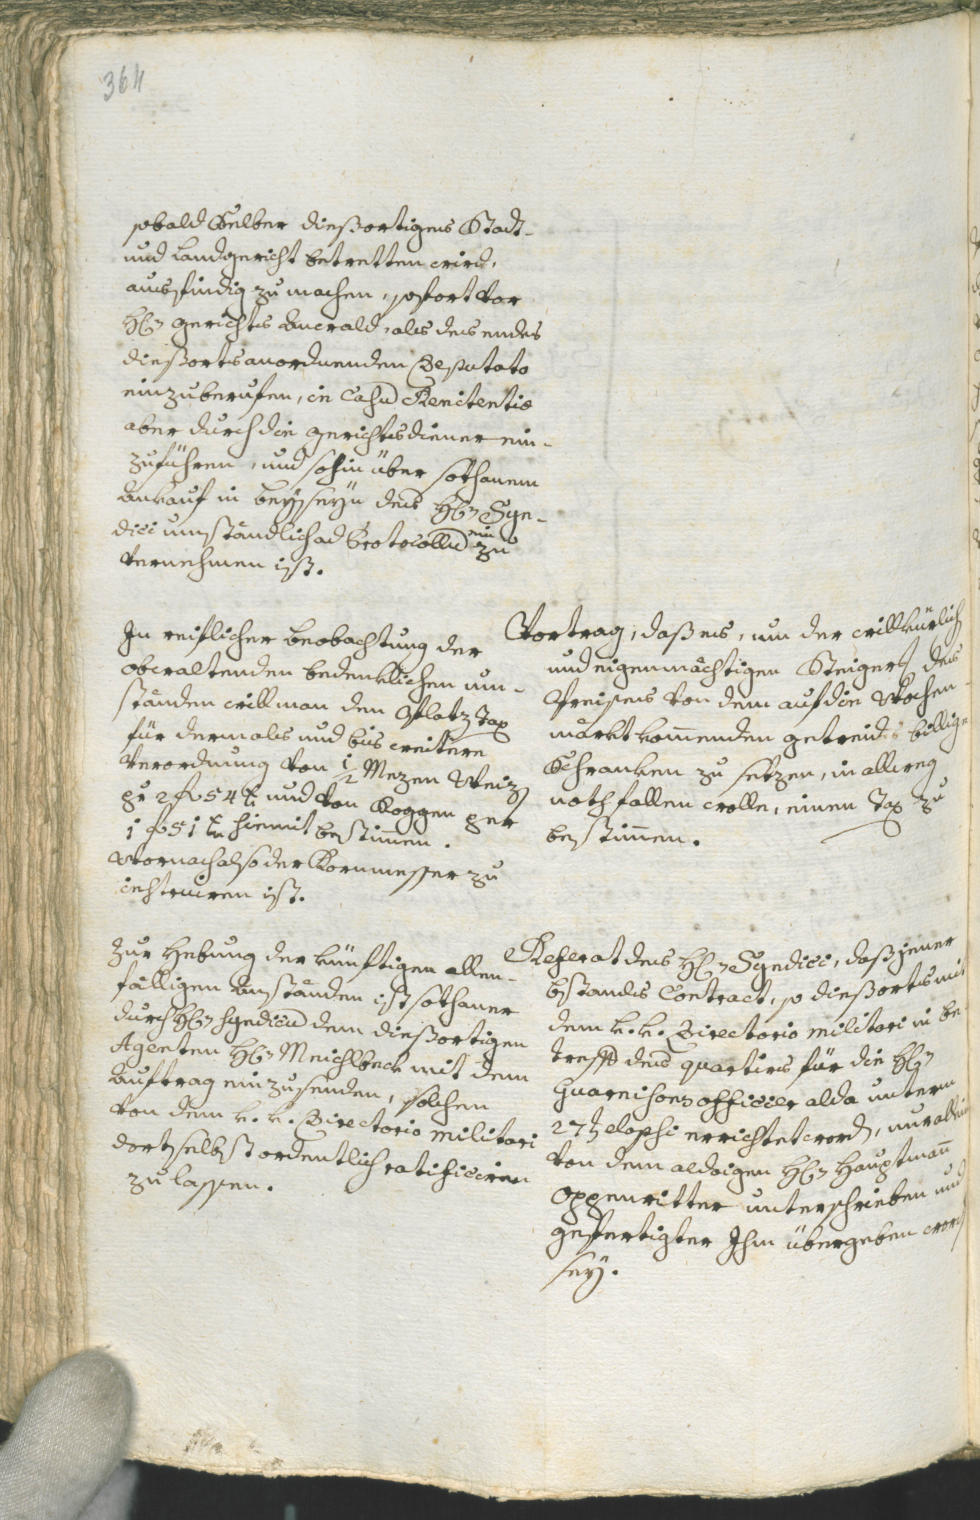 364
sobald Selber dießortiges Stadt-
und Landgericht betretten wird,
ausfindig zu machen, sofort vor
H: gerichts Anwald, als des endes
dießorts anordnenden Deputato
einzuberufen, in Casu Renitentiæ
aber durch die gerichtsdiener ein-
zuführen, und sohin über sothanem
Ankauf in beyseyn des H: Syn-
dici umständlich ad Protocollum zu
vernehmen ist.
In reiflicher beobachtung der
obwaltenden bedenklichen um-
ständen will man den Platz Tax
für dermals und bis weitere
Verordnung von 1/2 Mezen Weiz
pr 2 f 54 x und von Roggen per
1 f 51 x hiemit bestimmen.
Wornach also der Kornmesser zu
instruiren ist.
Vortrag, daß es, um der willkürlich
und eigenmächtigen Steiger des
Preises von dem auf die Wochen-
märkt kommenden getreids billige
Schranken zu setzen, in allweg
nothfallen wolle, einen Tax zu
bestimmen.
Zur Hebung der künftigen allen-
fälligen Anständen ist sothaner
durch H: Syndicum dem dießortigen
Agenten H: Meichlbeck mit dem
Auftrag einzusenden, solchen
von dem k. k. Directorio militari
dortselbst ordentlich ratificiren
zu lassen.
Referat des H: Syndici, daß jener
bstands Contract, so dießorts mit
dem k. k. Directorio militari in be-
treff des quartirs für die H:
Guarnisons officier alda unterm
27t elapsi errichtet word, nur allein
von dem aldoigen H: Hauptmann
Oppenritter unterschrieben und
gefertigter Ihm übergeben word
sey.